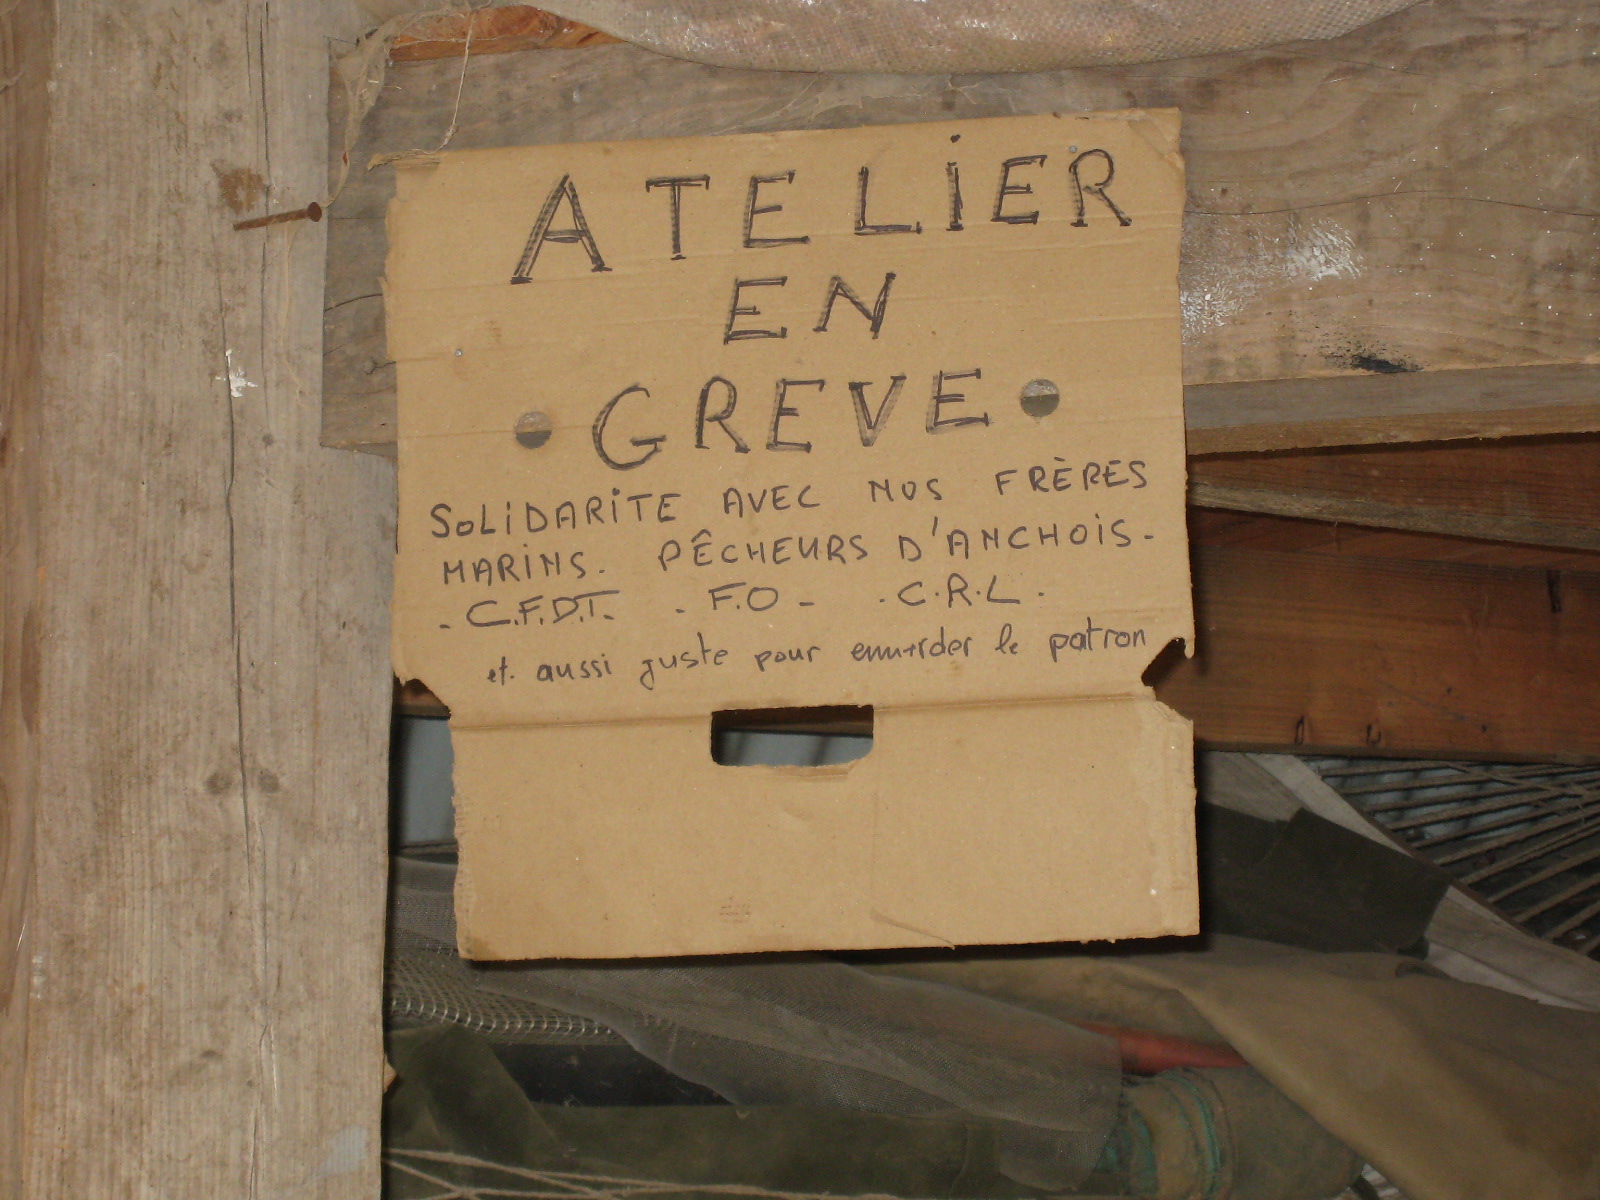 ATELiER
EN
GREVE
SOLiDARiTE AVEC NOS FRÈRES
MARiNS. PÊCHEURS D'ANCHOiS-
- C.F.D.T. - F.O - . C.R.L .
et aussi juste pour emmerder le patron